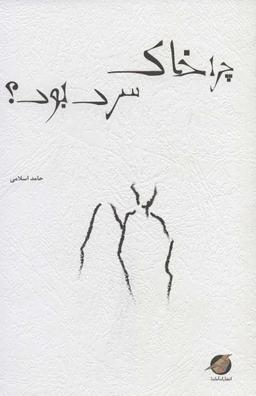 چرا خاک
سرد بود؟
حامد اسلامی